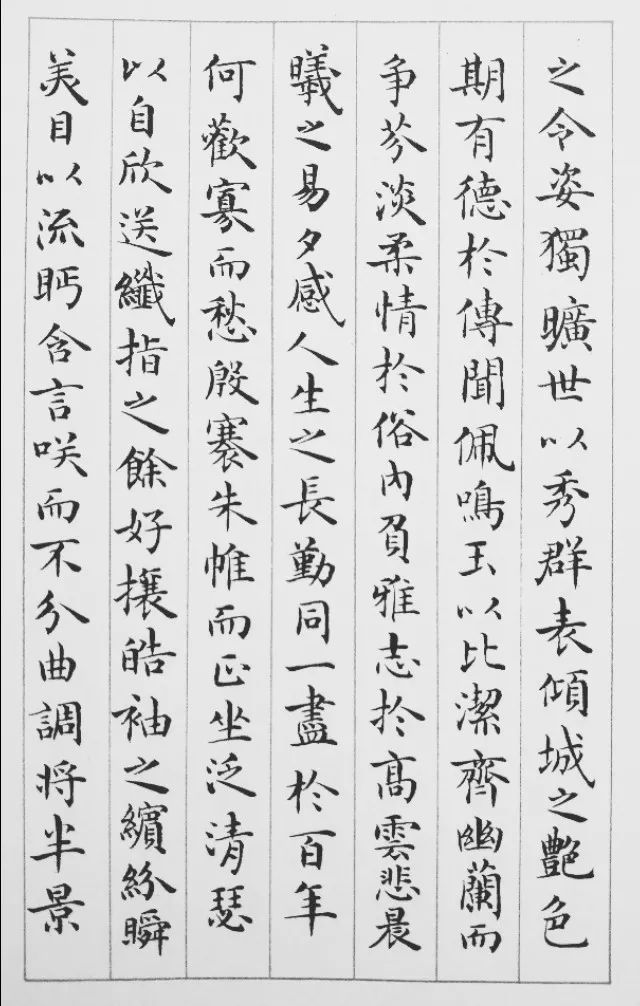 之令姿獨曠世以秀群表傾城之艶色
期有德於傳聞佩鳴玉以比潔齊幽蘭而
争芬淡柔情於俗内負雅志於高雲悲晨
曦之易夕感人生之長勤同一盡於百年
何歡寡而愁殷褰朱帷而正坐泛清瑟
以自欣送纖指之餘好攘皓袖之繽紛瞬
美目以流眄含言咲而不分曲調将半景